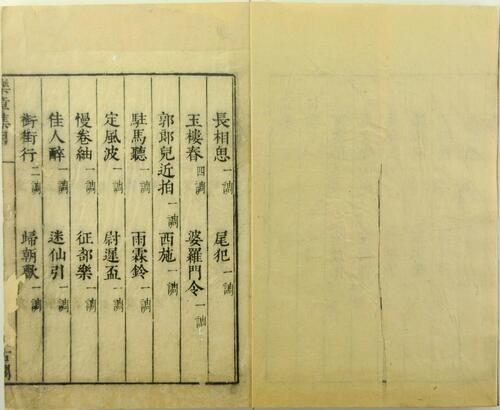 長相思 一調 尾犯 一調
玉樓春 四調 婆羅門令 一調
郭郎兒近拍 一調 西施 一調
駐馬聽 一調 雨霖鈴 一調
定風波 一調 尉遲盃 一調
慢卷紬 一調 征部樂 一調
佳人醉 一調 迷仙引 一調
御街行 二調 歸朝歡 一調
樂章集目